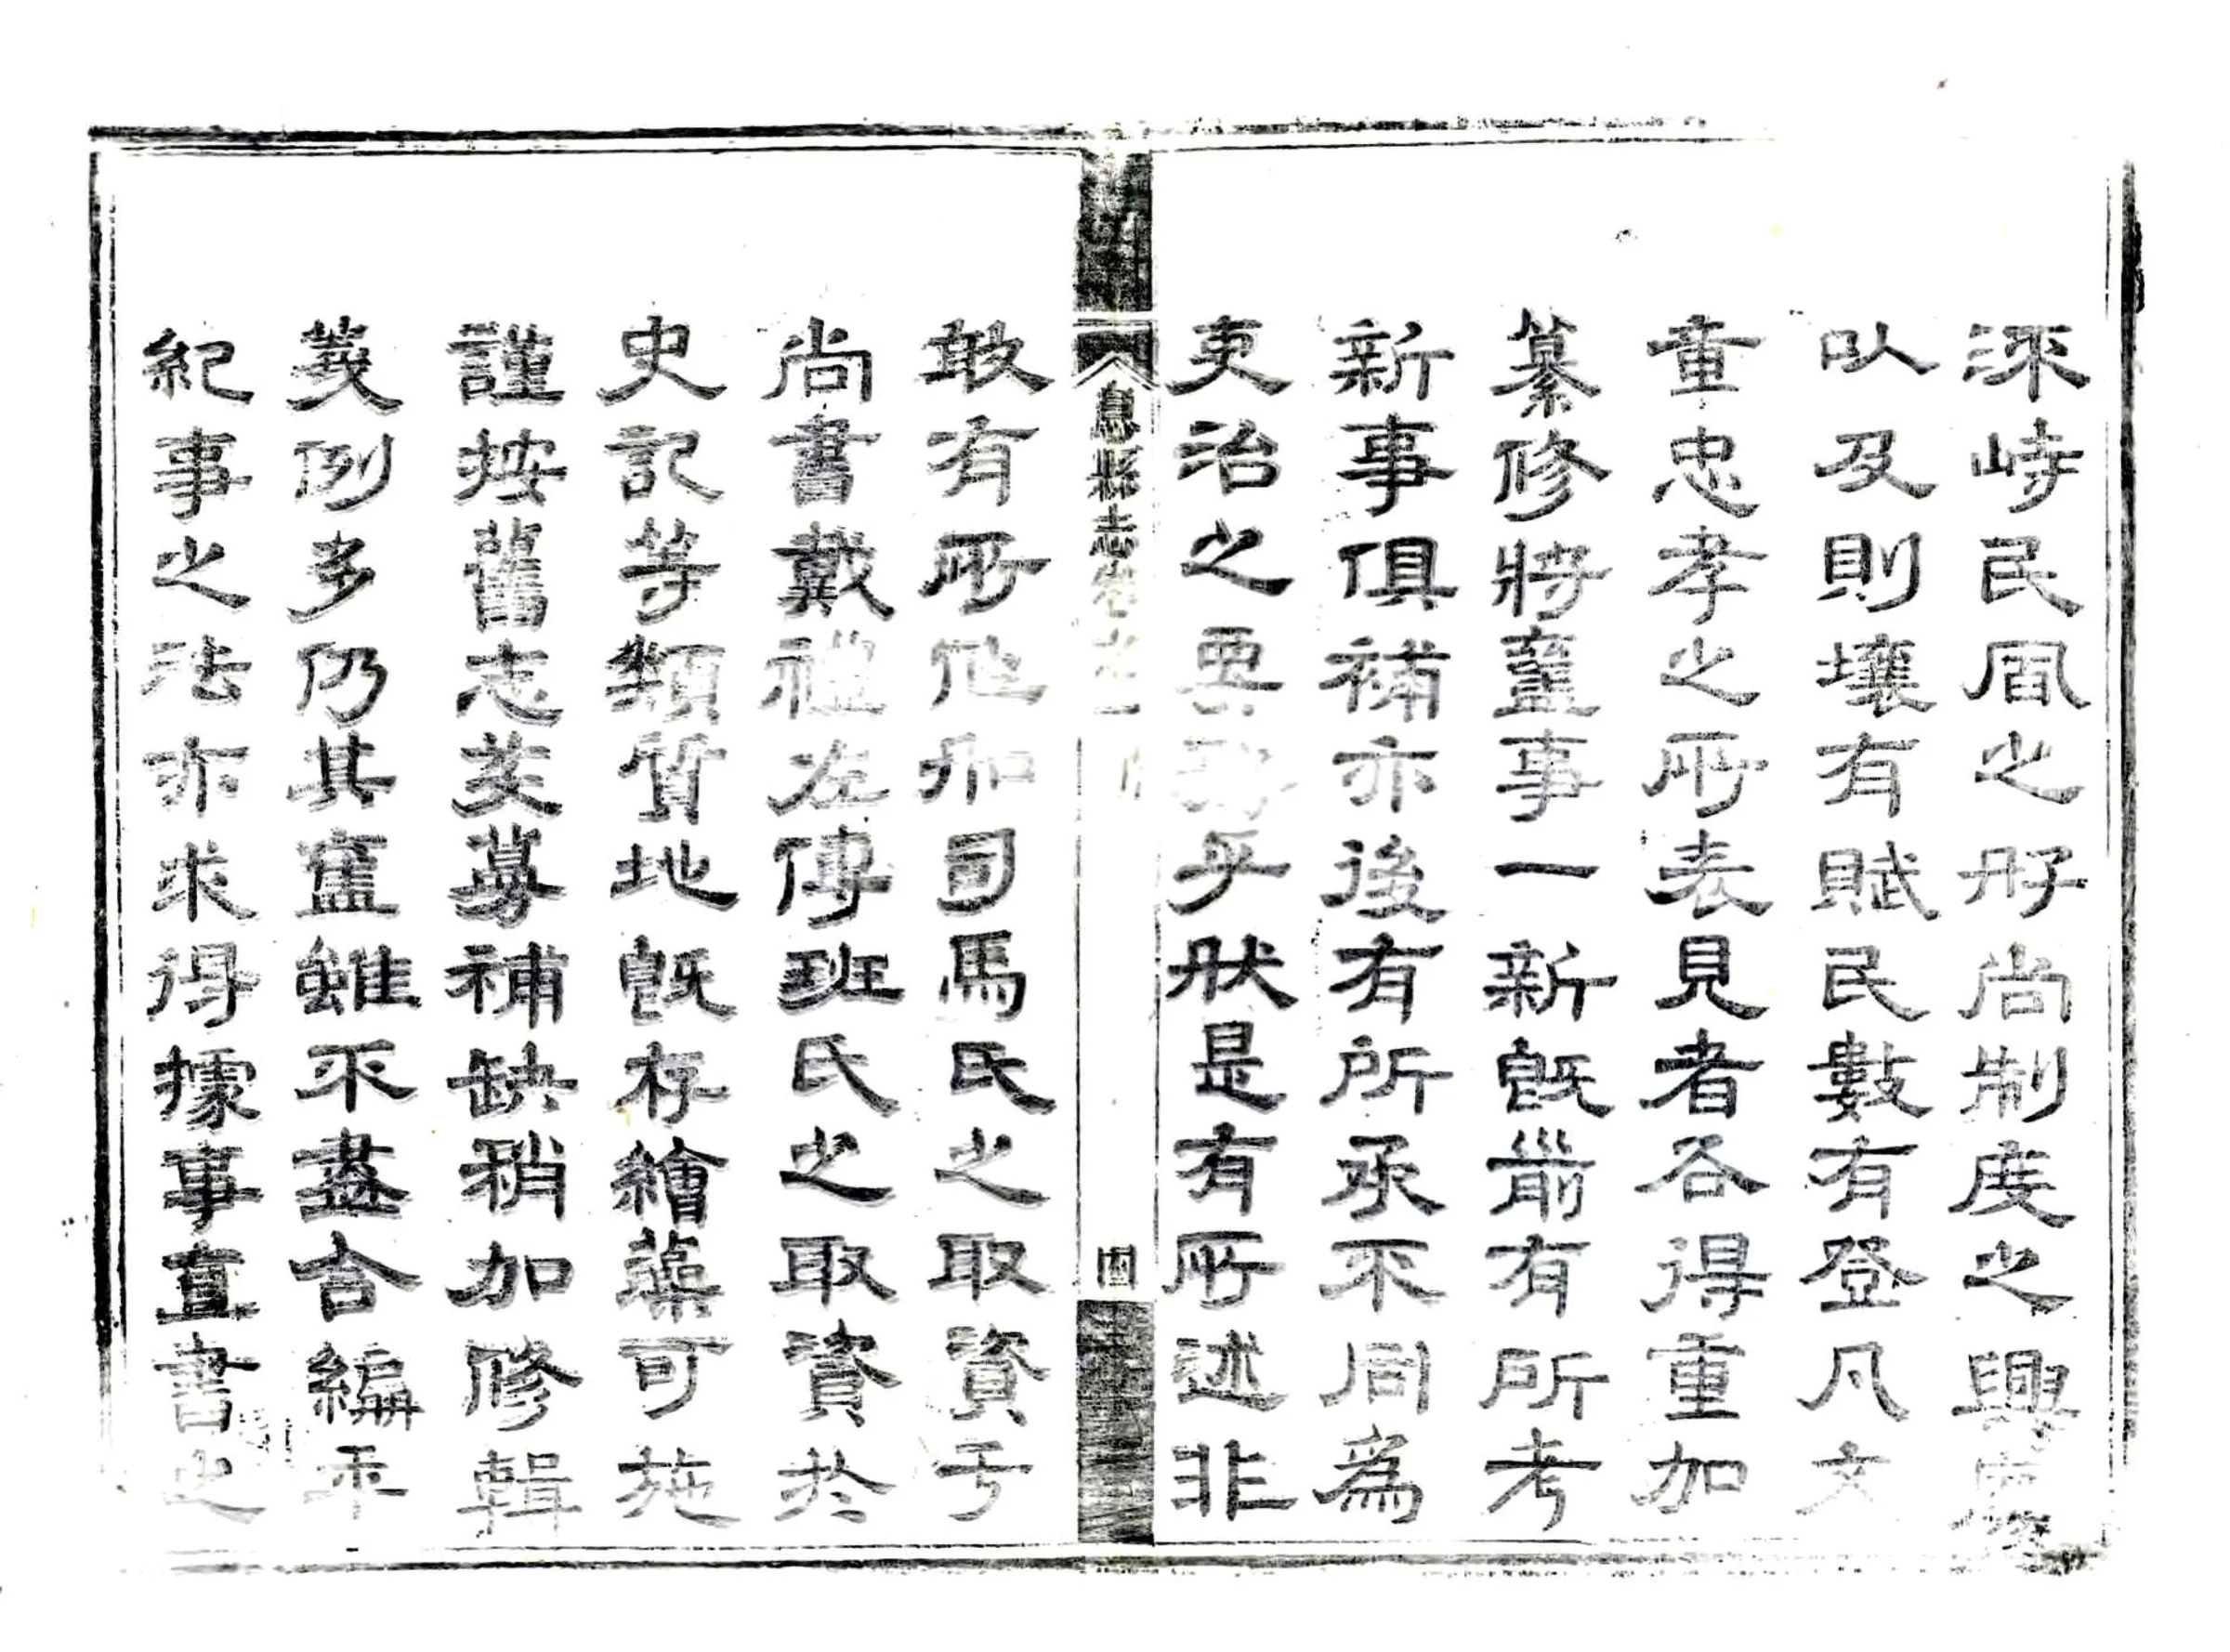 深峙民風之好尚制度之興廢
以及則壤有賦民數有登凡文
重忠孝之所表見者各得重加
纂修將舊事一新既前有所考
新事俱補亦後有所承不同為
吏治之要務乎狀是有所述非
息縣志卷之
四
敢有所他如司馬氏之取資于
尚書戴禮左傳班氏之取資於
史記等類質地既存繪藻可施
謹按舊志芟蕪補缺稍加修輯
義例多仍其舊雖不盡合編年
紀事之法亦求得據事直書之